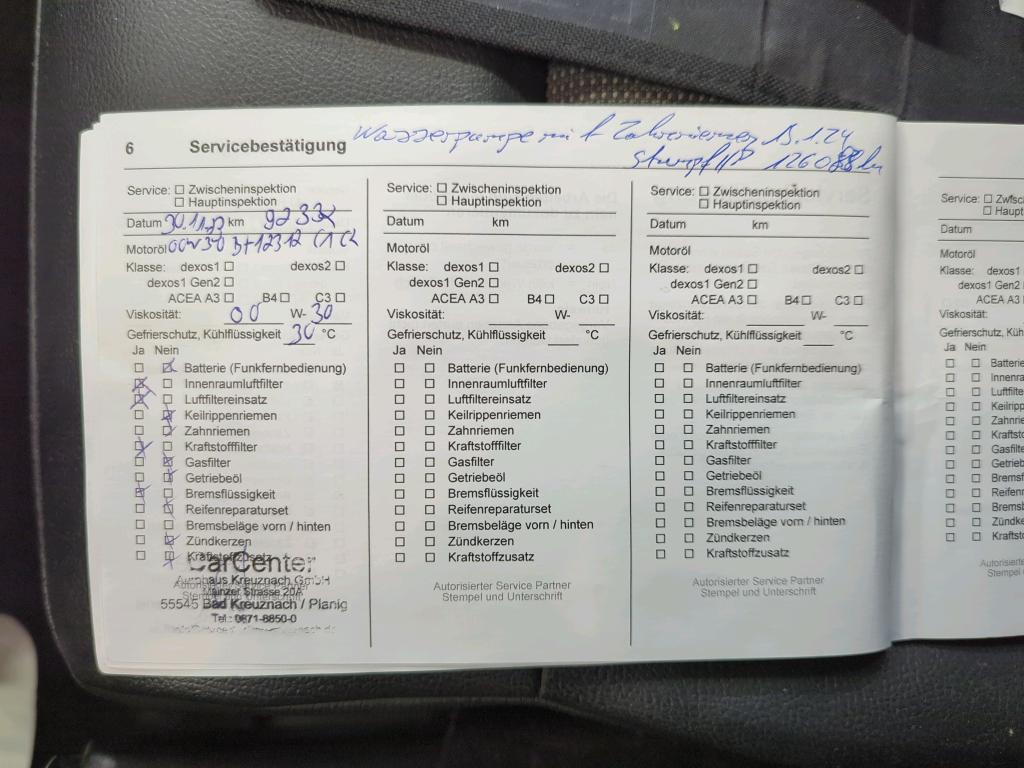 Wasserpumpe mit Zahnriemen 1.24
6 Servicebestätigung
1260 km
Service: □ Zwischeninspektion
□ Hauptinspektion
Datum 30.11. km
Motoröl 00W30
Klasse: dexos1 □ dexos2 □
dexos1 Gen2 □
ACEA A3 □ B4 □ C3 □
Viskosität: 00 W- 30
Gefrierschutz, Kühlflüssigkeit 30 °C
Ja Nein
Batterie (Funkfernbedienung)
Innenraumluftfilter
Luftfiltereinsatz
Keilrippenriemen
Zahnriemen
Kraftstofffilter
Gasfilter
Getriebeöl
Bremsflüssigkeit
Reifenreparaturset
Bremsbeläge vorn / hinten
Zündkerzen
Kraftstoffzusatz
CarCenter
Autohaus Kreuznach GmbH
Mainzer Strasse 20A
55545 Bad Kreuznach / Planig
Tel.: 0671-8850-0
Service: □ Zwischeninspektion
□ Hauptinspektion
Datum km
Motoröl
Klasse: dexos1 □ dexos2 □
dexos1 Gen2 □
ACEA A3 □ B4 □ C3 □
Viskosität: W-
Gefrierschutz, Kühlflüssigkeit °C
Ja Nein
□ □ Batterie (Funkfernbedienung)
□ □ Innenraumluftfilter
□ □ Luftfiltereinsatz
□ □ Keilrippenriemen
□ □ Zahnriemen
□ □ Kraftstofffilter
□ □ Gasfilter
□ □ Getriebeöl
□ □ Bremsflüssigkeit
□ □ Reifenreparaturset
□ □ Bremsbeläge vorn / hinten
□ □ Zündkerzen
□ □ Kraftstoffzusatz
Autorisierter Service Partner
Stempel und Unterschrift
Service: □ Zwischeninspektion
□ Hauptinspektion
Datum km
Motoröl
Klasse: dexos1 □ dexos2 □
dexos1 Gen2 □
ACEA A3 □ B4 □ C3 □
Viskosität: W-
Gefrierschutz, Kühlflüssigkeit °C
Ja Nein
□ □ Batterie (Funkfernbedienung)
□ □ Innenraumluftfilter
□ □ Luftfiltereinsatz
□ □ Keilrippenriemen
□ □ Zahnriemen
□ □ Kraftstofffilter
□ □ Gasfilter
□ □ Getriebeöl
□ □ Bremsflüssigkeit
□ □ Reifenreparaturset
□ □ Bremsbeläge vorn / hinten
□ □ Zündkerzen
□ □ Kraftstoffzusatz
Autorisierter Service Partner
Stempel und Unterschrift
Service: □ Zwisc
□ Haupt
Datum
Motoröl
Klasse: dexos1 □
dexos1 Gen2 □
ACEA A3 □
Viskosität:
Gefrierschutz, Küh
Ja Nein
□ □ Batterie
□ □ Innenra
□ □ Luftfilte
□ □ Keilripp
□ □ Zahnrie
□ □ Kraftsto
□ □ Gasfilte
□ □ Getrieb
□ □ Bremsf
□ □ Reifenr
□ □ Bremsb
□ □ Zündke
□ □ Kraftsto
Autorisierte
Stempel